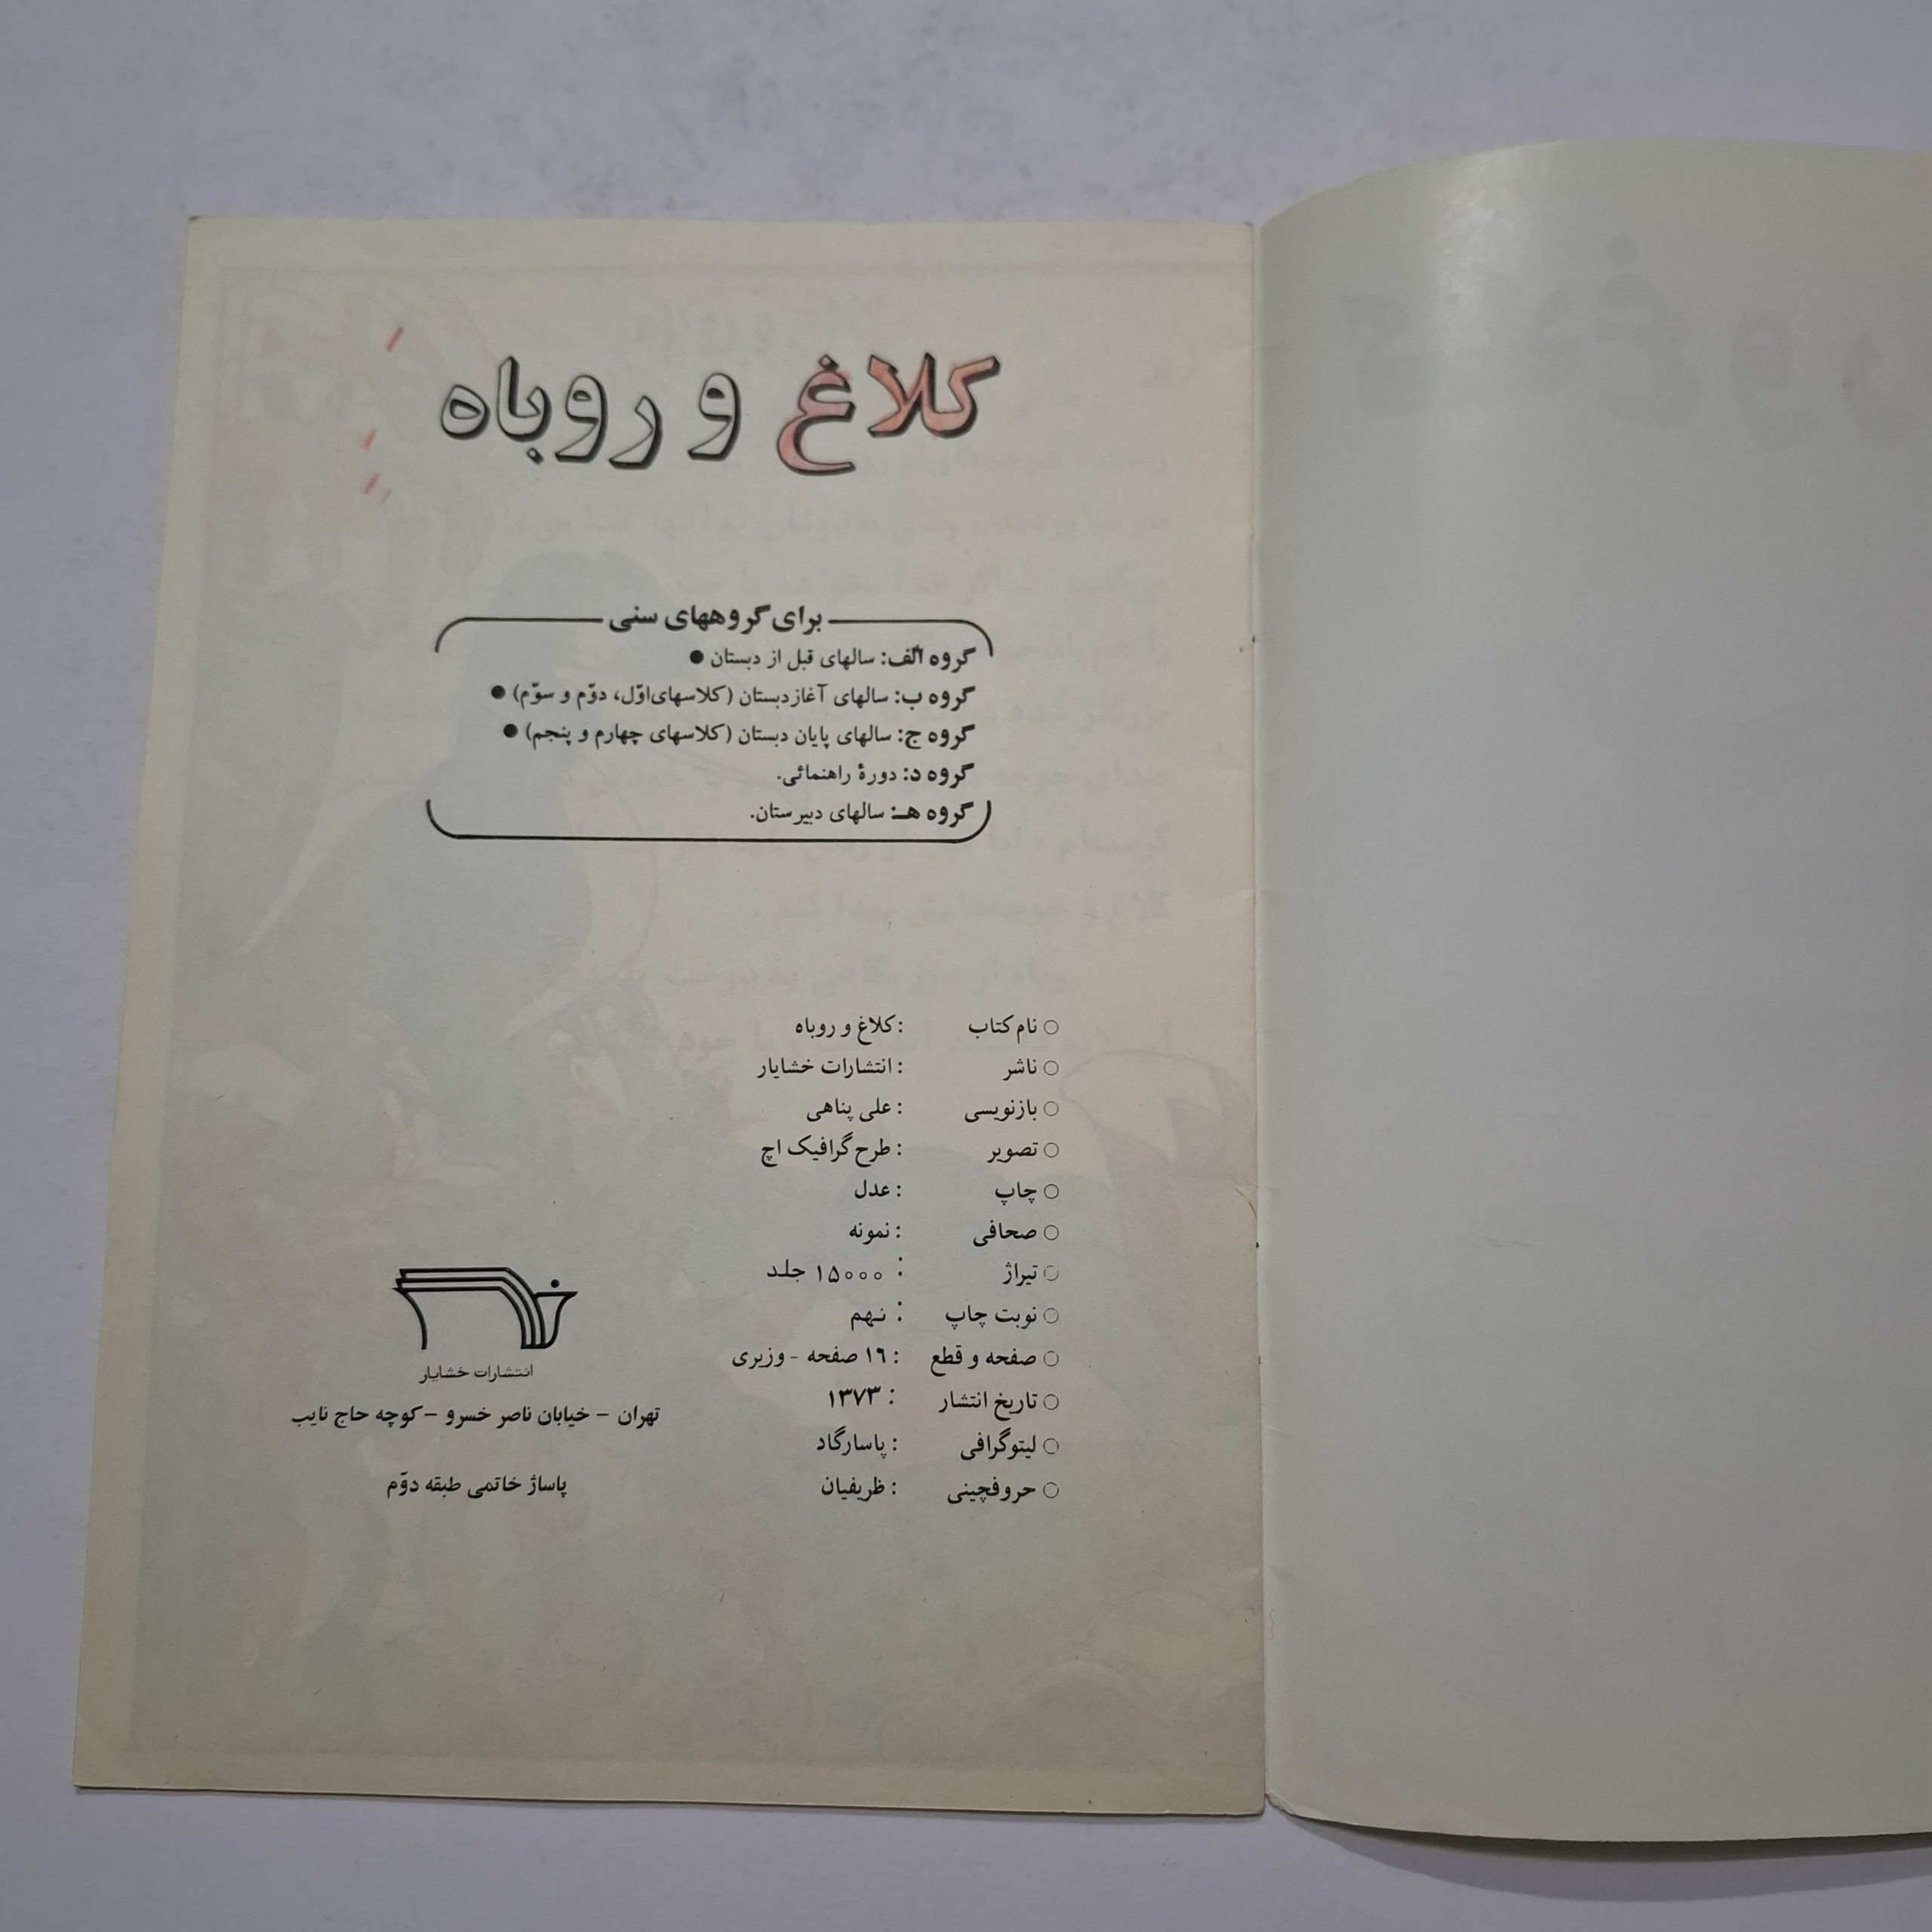 کلاغ و روباه
برای گروههای سنی
گروه الف: سالهای قبل از دبستان ●
گروه ب: سالهای آغاز دبستان (کلاسهای اوّل، دوّم و سوّم) ●
گروه ج: سالهای پایان دبستان (کلاسهای چهارم و پنجم) ●
گروه د: دورهٔ راهنمائی.
گروه هـ: سالهای دبیرستان.
○ نام کتاب : کلاغ و روباه
○ ناشر : انتشارات خشایار
○ بازنویسی : علی پناهی
○ تصویر : طرح گرافیک اچ
○ چاپ : عدل
○ صحافی : نمونه
○ تیراژ : ۱۵۰۰۰ جلد
○ نوبت چاپ : نهم
○ صفحه و قطع : ۱٦ صفحه - وزیری
○ تاریخ انتشار : ۱۳۷۳
○ لیتوگرافی : پاسارگاد
○ حروفچینی : ظریفیان
انتشارات خشایار
تهران – خیابان ناصر خسرو – کوچه حاج نایب
پاساژ خاتمی طبقه دوّم